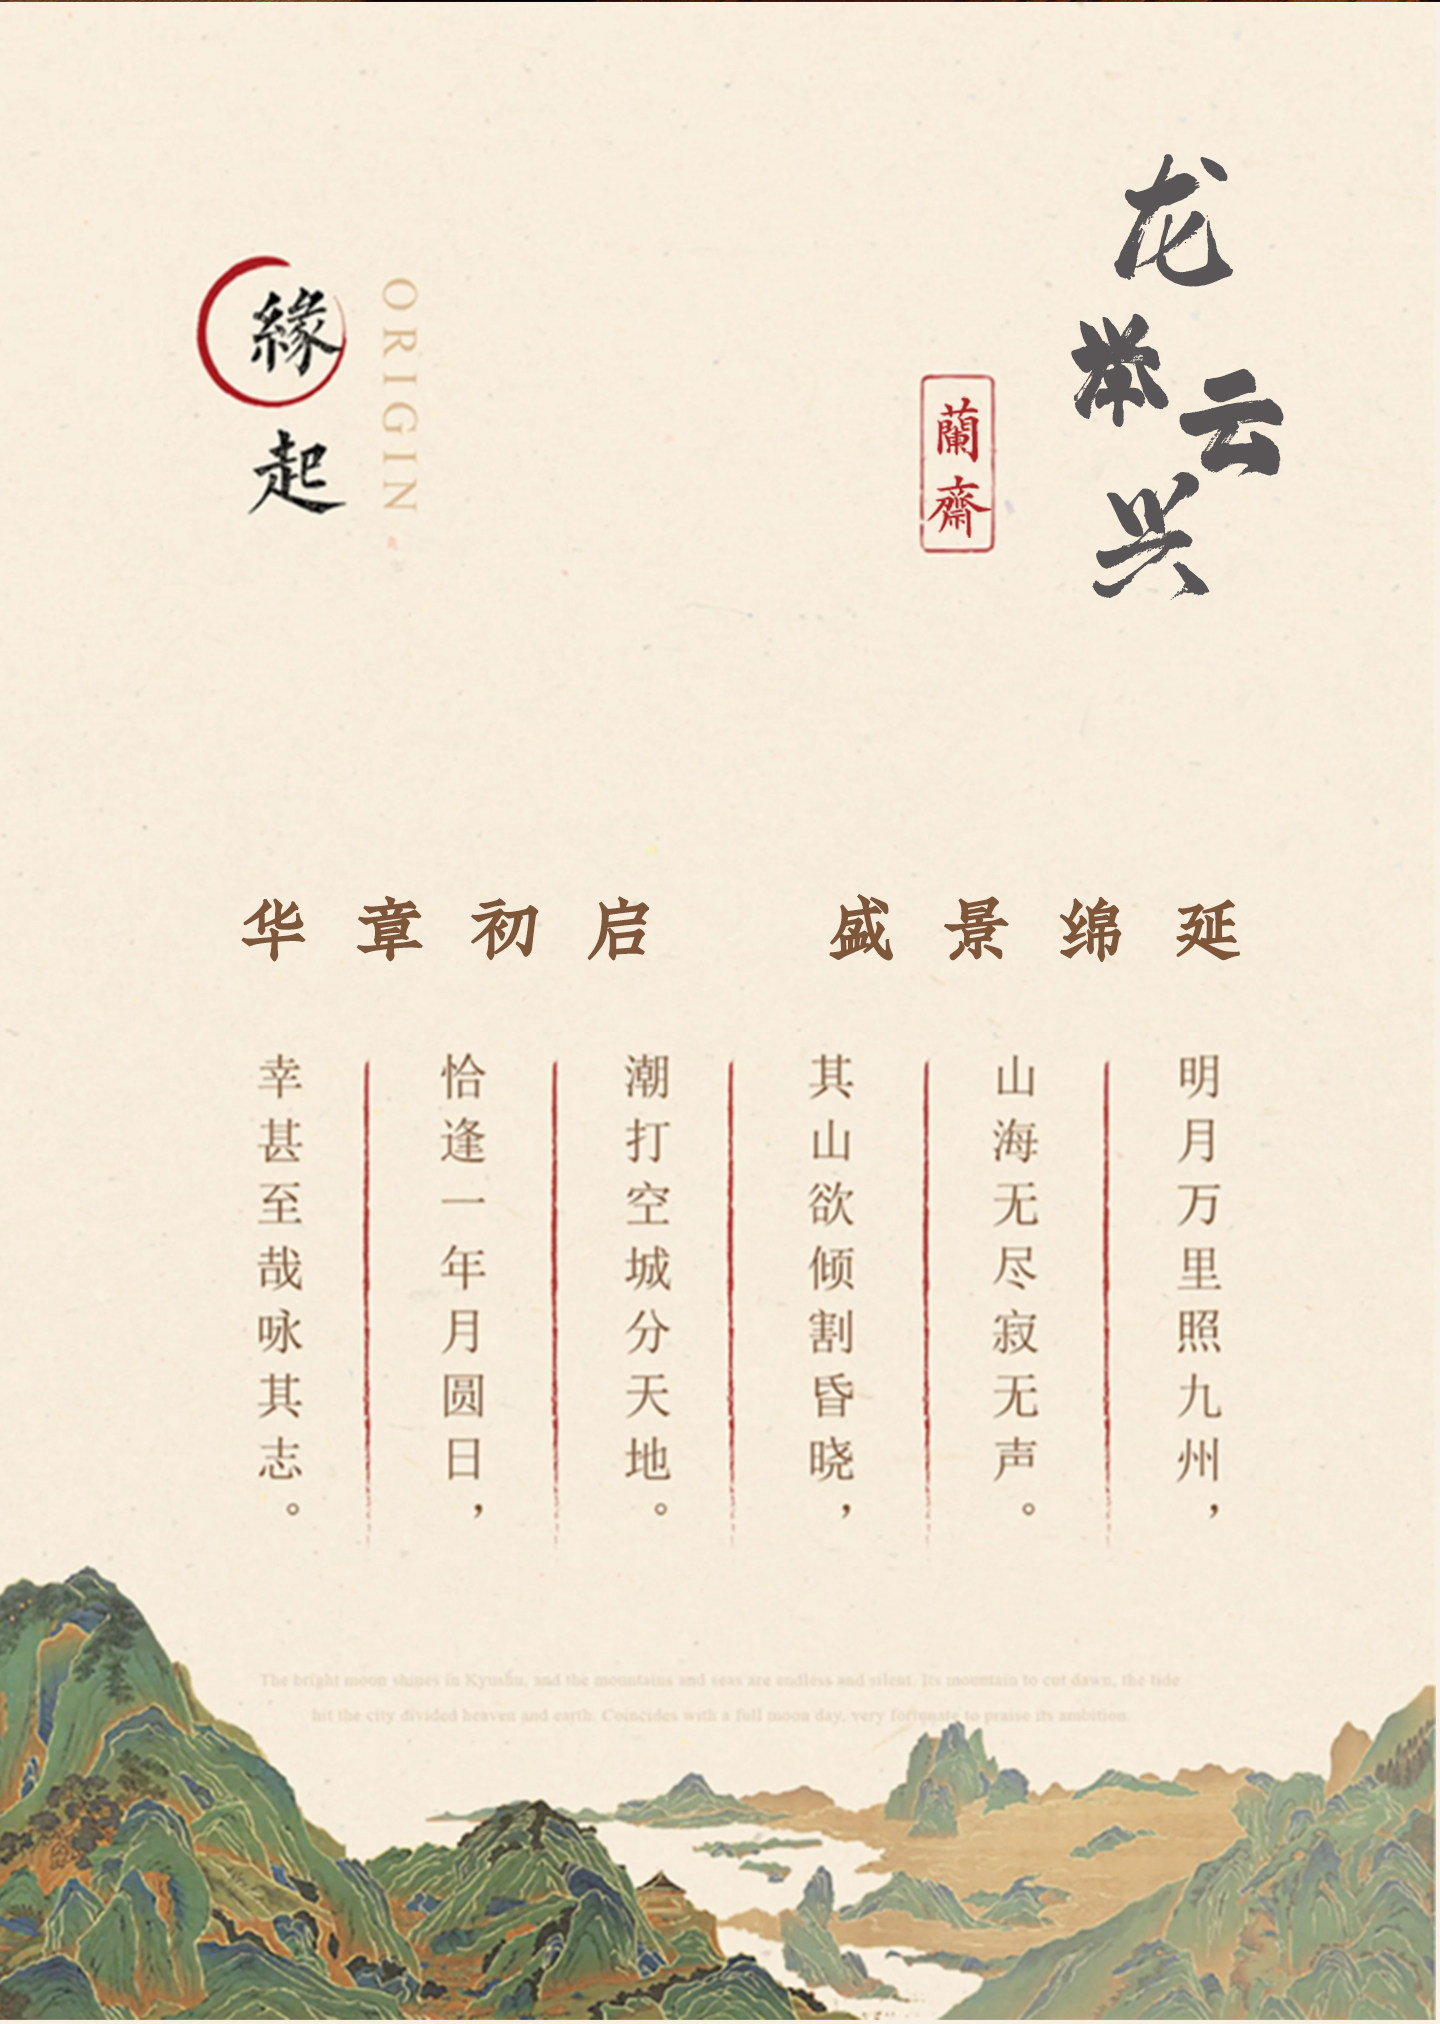 龙举云兴
蘭齋
緣起
ORIGIN
华章初启 盛景绵延
明月万里照九州，
山海无尽寂无声。
其山欲倾割昏晓，
潮打空城分天地。
恰逢一年月圆日，
幸甚至哉咏其志。
The bright moon shines in Kyushu, and the mountains and seas are endless and silent. Its mountain to cut dawn, the tide
hit the city divided heaven and earth. Coincides with a full moon day, very fortunate to praise its ambition.